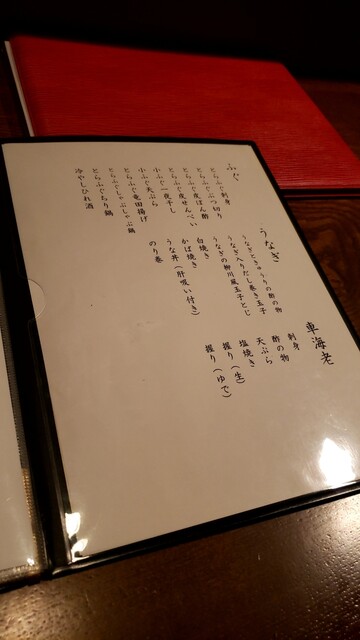 ふぐ
とらふぐ刺身
とらふぐぶつ切り
とらふぐ皮ぽん酢
とらふぐ皮せんべい
小ふぐ一夜干し
小ふぐ天ぷら
とらふぐ竜田揚げ
とらふぐしゃぶしゃぶ鍋
とらふぐちり鍋
冷やしひれ酒
うなぎ
うなぎときゅうりの酢の物
うなぎ入りだし巻き玉子
うなぎの柳川風玉子とじ
白焼き
かば焼き
うな丼（肝吸い付き）
のり巻
車海老
刺身
酢の物
天ぷら
塩焼き
握り（生）
握り（ゆで）